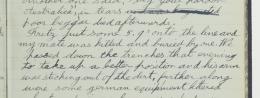 another one said, "my poor
Australia, in tears
poor beggar died afterwards.
Fritz put some 5.9s onto the line and
my mate was killed and buried by me. We
passed down the trenches that evening
to take up a better position and his arm
was sticking out of the dirt, further along
were some german equipment